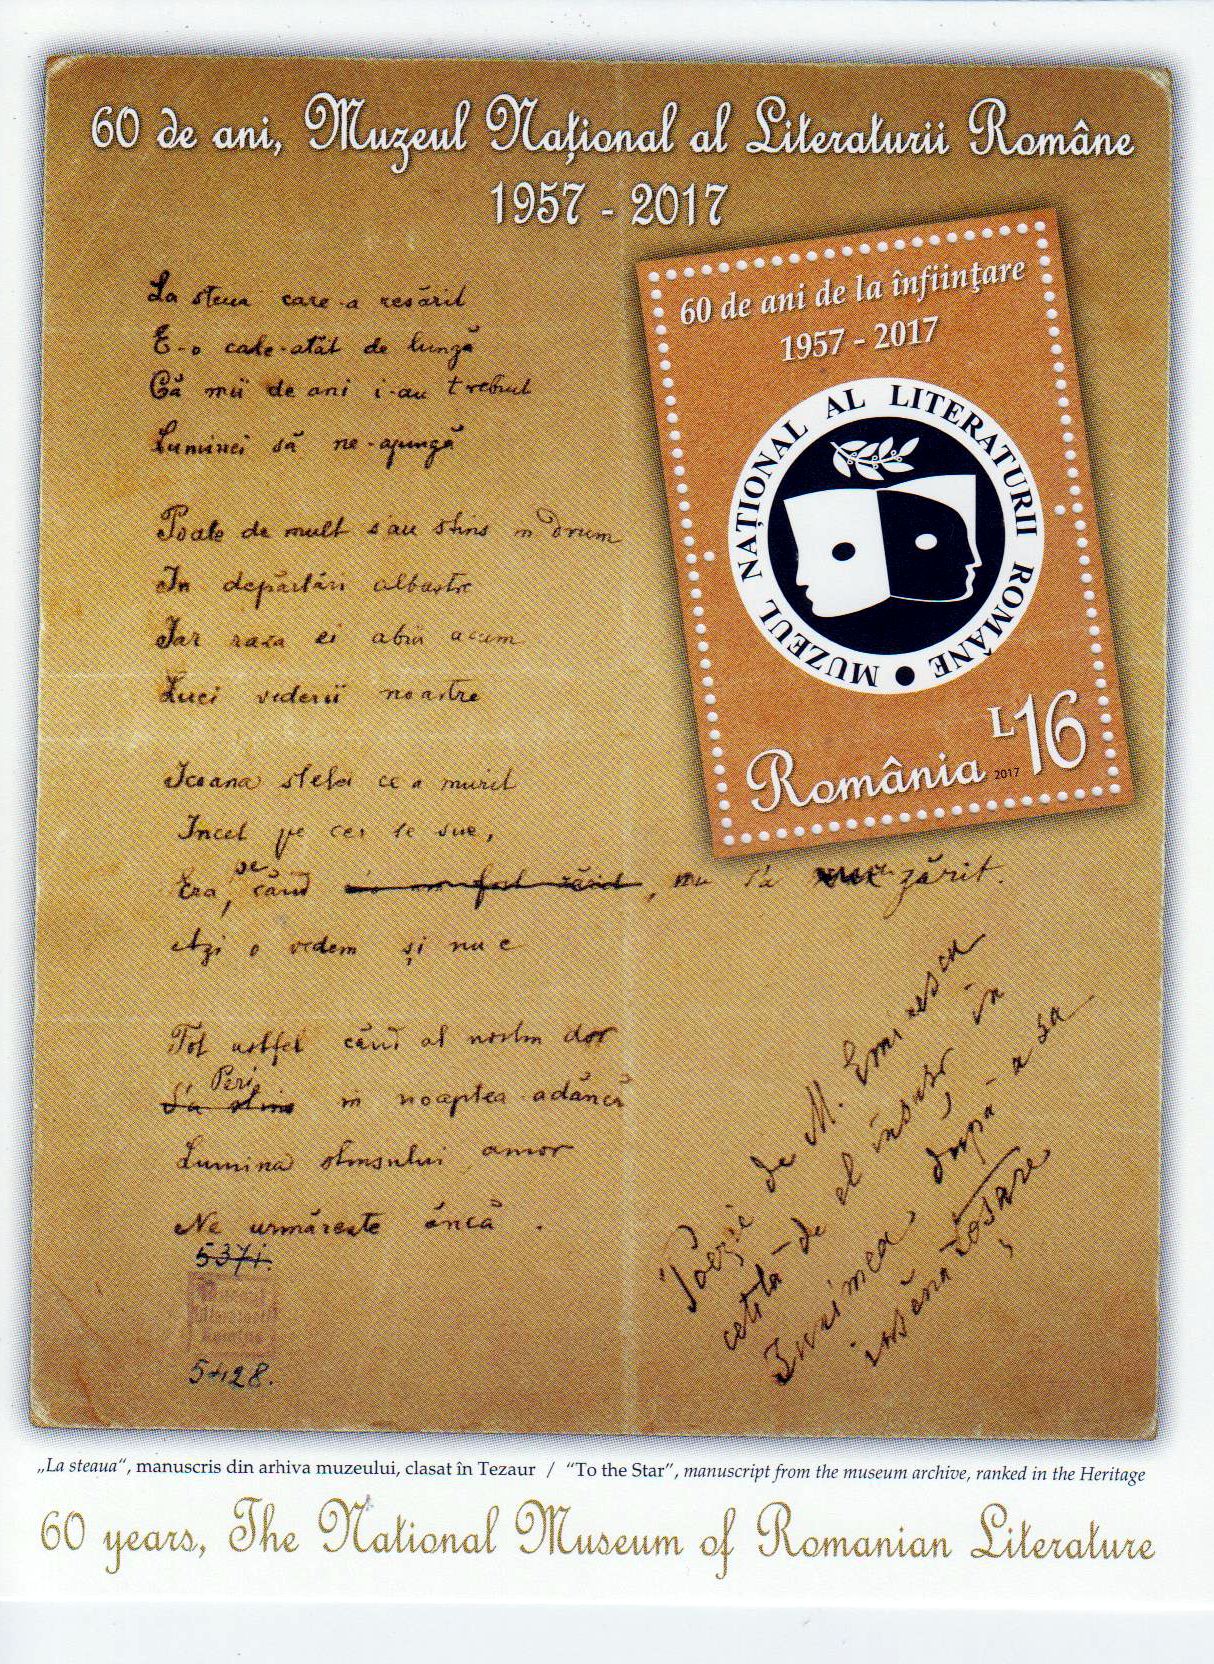 60 de ani, Muzeul Național al Literaturii Române
1957 - 2017
60 de ani de la înființare
1957 - 2017
MUZEUL NAȚIONAL AL LITERATURII ROMÂNE
România 2017 L16
La steua care-a resărit
E-o cale-atât de lungă
Că mii de ani i-au trebuit
Luminei să ne-ajungă
Poate de mult s'au stins în drum
În depărtări albastre
Iar raza ei abia acum
Luci vederii noastre
Icoana stelei ce a murit
Încet pe cer se sue,
Era, pe când nu s'a zărit.
Azi o vedem și nu e
Tot astfel când al nostru dor
Peri
S'a stins în noaptea adâncă
Lumina stinsului amor
Ne urmărește âncă.
5371.
5428.
Poezie de M. Eminescu
cetită de el însuși în
Junimea după a sa
însănătoșare
„La steaua“, manuscris din arhiva muzeului, clasat în Tezaur / “To the Star”, manuscript from the museum archive, ranked in the Heritage
60 years, The National Museum of Romanian Literature